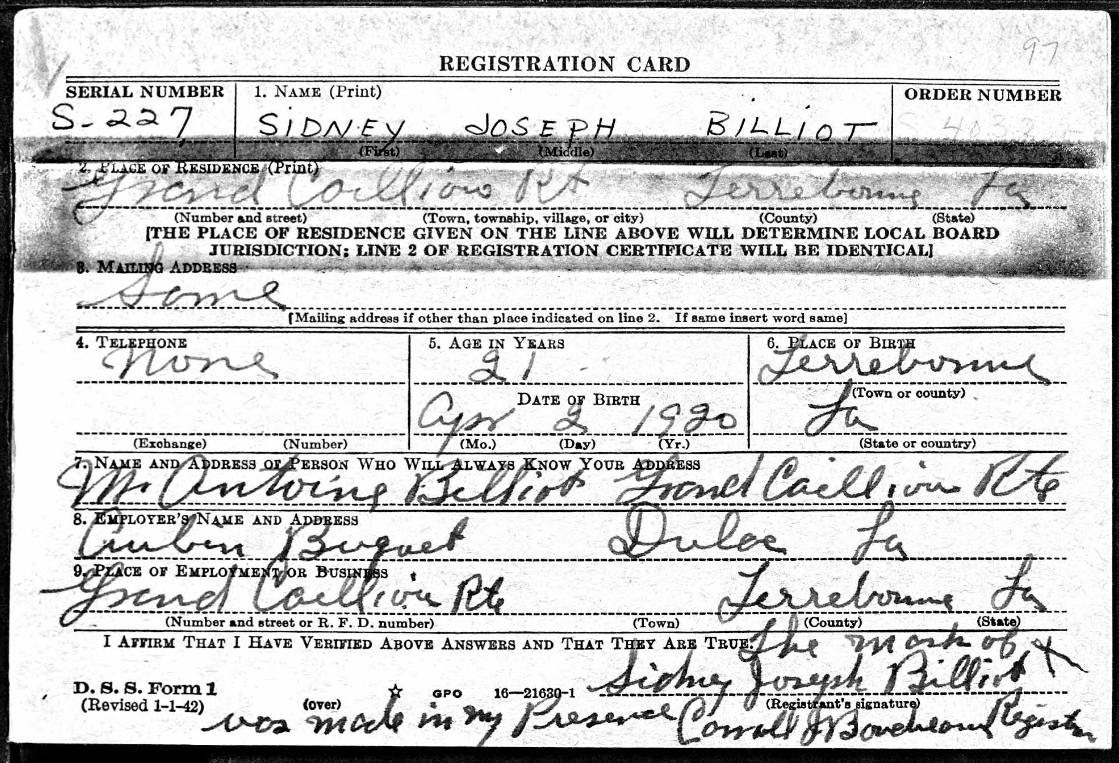 97
REGISTRATION CARD
SERIAL NUMBER 1. NAME (Print) ORDER NUMBER
S-227 SIDNEY JOSEPH BILLIOT
(First) (Middle) (Last)
2. PLACE OF RESIDENCE (Print)
Grand Cailliou Rt Terrebonne La
(Number and street) (Town, township, village, or city) (County) (State)
[THE PLACE OF RESIDENCE GIVEN ON THE LINE ABOVE WILL DETERMINE LOCAL BOARD
JURISDICTION; LINE 2 OF REGISTRATION CERTIFICATE WILL BE IDENTICAL]
3. MAILING ADDRESS
Same
[Mailing address if other than place indicated on line 2. If same insert word same]
4. TELEPHONE 5. AGE IN YEARS 6. PLACE OF BIRTH
None 21 Terrebonne
DATE OF BIRTH (Town or county)
Apr 2 1920 La
(Exchange) (Number) (Mo.) (Day) (Yr.) (State or country)
7. NAME AND ADDRESS OF PERSON WHO WILL ALWAYS KNOW YOUR ADDRESS
Mr Antoine Billiot Grand Cailliou Rte
8. EMPLOYER'S NAME AND ADDRESS
Aubin Buquet Dulac La
9. PLACE OF EMPLOYMENT OR BUSINESS
Grand Cailliou Rte Terrebonne La
(Number and street or R. F. D. number) (Town) (County) (State)
I AFFIRM THAT I HAVE VERIFIED ABOVE ANSWERS AND THAT THEY ARE TRUE.
The mark of X
Sidney Joseph Billiot
D. S. S. Form 1
(Revised 1-1-42) (over) GPO 16—21630-1 (Registrant's signature)
was made in my Presence Carroll J Registrar